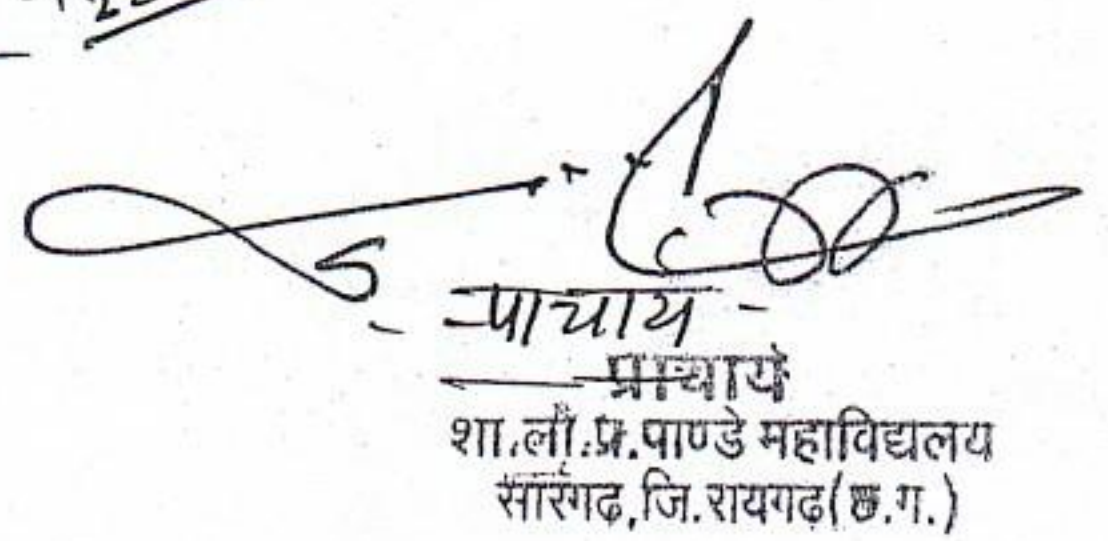 प्राचार्य
प्राचार्य
शा.लो.प्र.पाण्डे महाविद्यालय
सारंगढ,जि.रायगढ(छ.ग.)